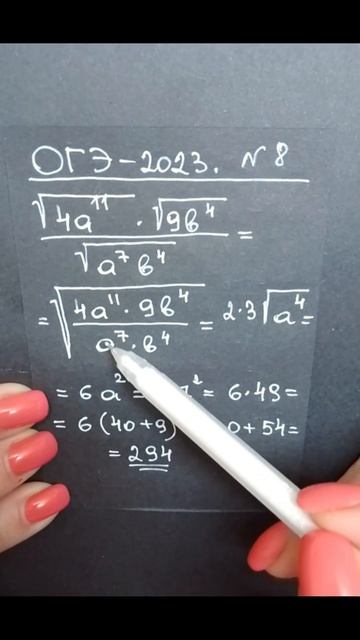 ОГЭ-2023. N 8
√4a¹¹ · √9b⁴
√a⁷b⁴ =
= √4a¹¹·9b⁴
a⁷·b⁴ = 2·3√a⁴=
= 6a² = ² = 6·49=
= 6(40+9) 0+54=
= 294